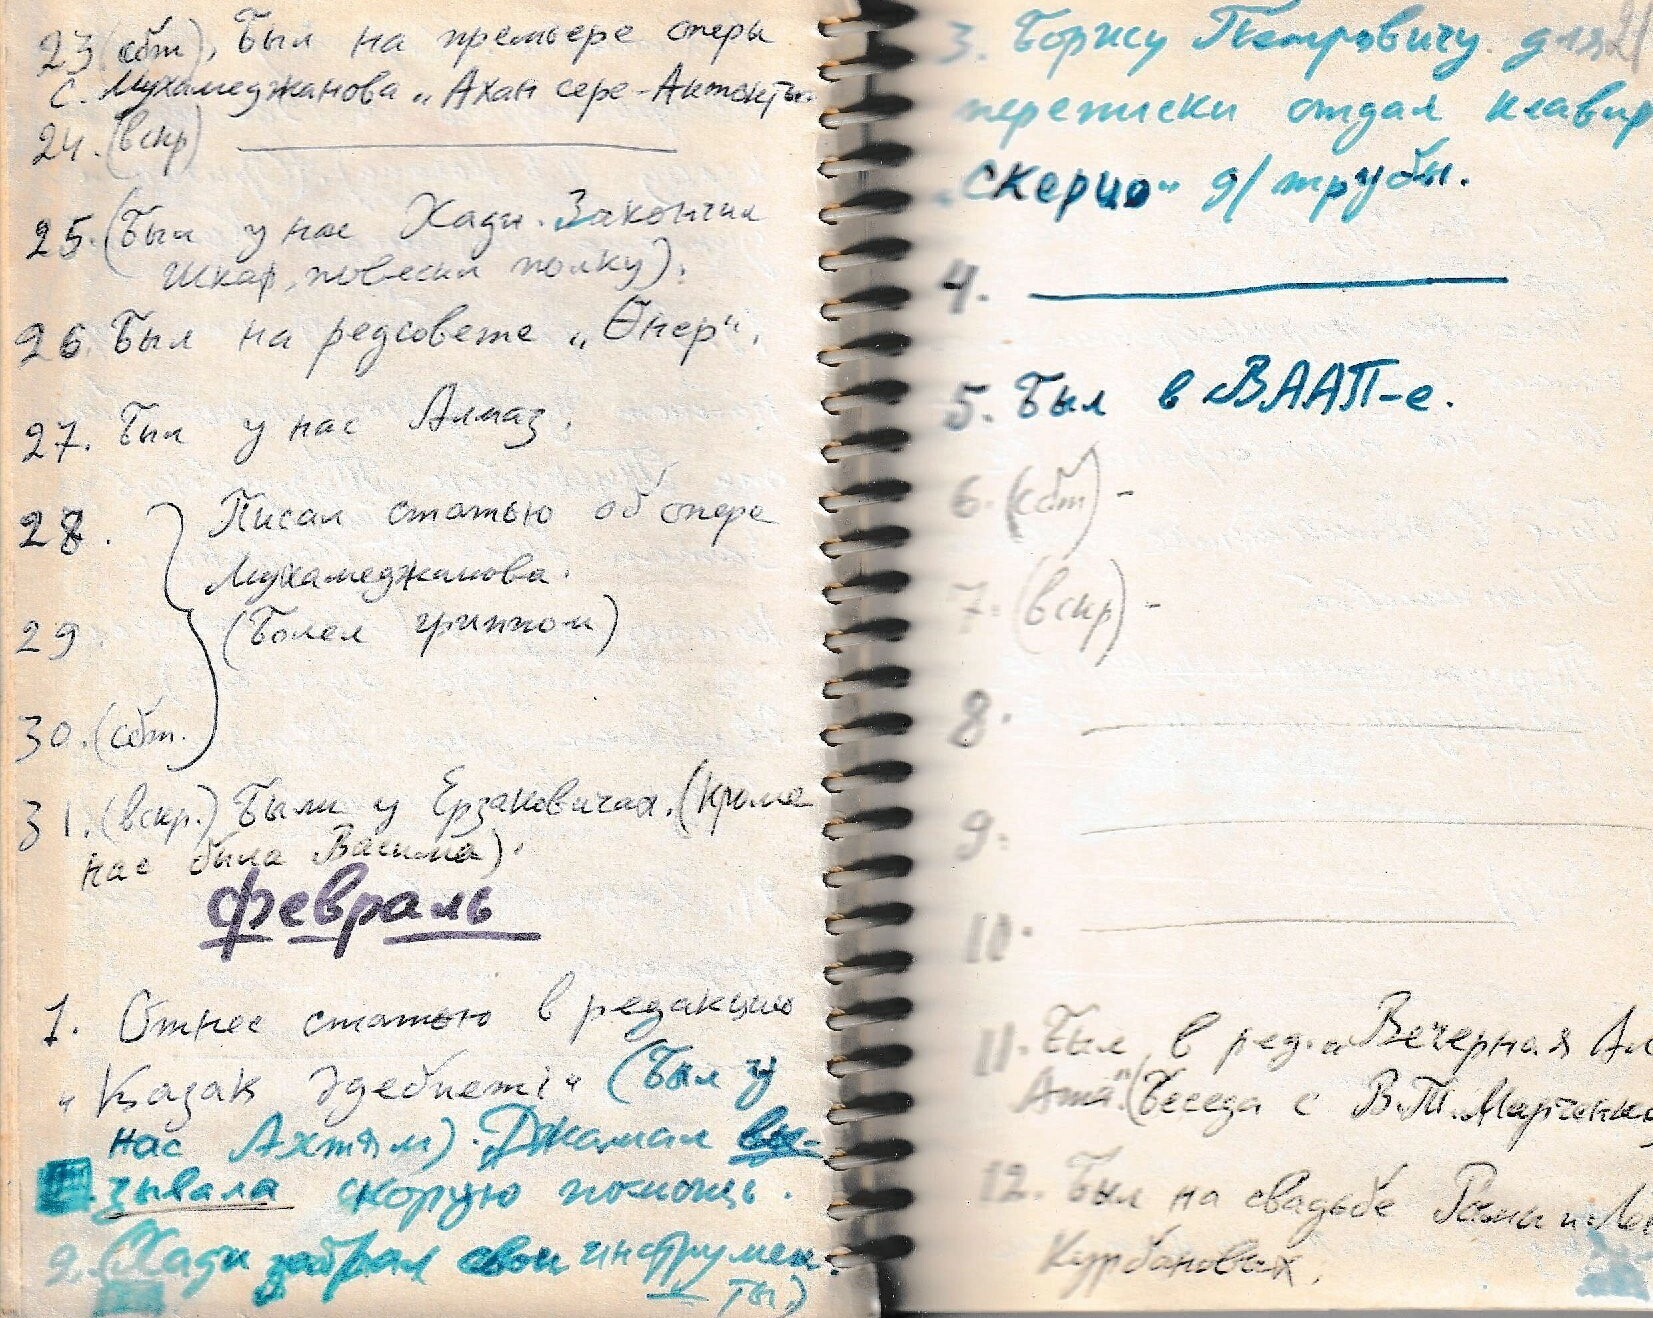 23(сбт), Был на премьере оперы
С. Мухамеджанова „Ахан сере-Актокты"
24. (вскр)
25. (Был у нас Хади. Закончил
шкаф, повесил полку).
26. Был на редсовете „Өнер".
27. Был у нас Алмаз.
28. Писал статью об опере
Мухамеджанова.
29. (Болел гриппом)
30. (сбт.)
31. (вскр.) Были у Ерзаковича. (кроме
нас была Васима).
февраль
1. Отнес статью в редакцию
„Казак Әдебиеті" (Был у
нас Ахтям). Джамал вы-
зывала скорую помощь.
2. (Хади забрал свои инструмен-
ты)
21
3. Борису Петровичу для
переписки отдал клавир
„Скерцо" д/трубы.
4.
5. Был в ВААП-е.
6. (сбт) -
7. (вскр) -
8.
9.
10.
11. Был в ред. „Вечерная Ал
Ата". (Беседа с В.Т. Марченко
12. Был на свадьбе
Курбановых.